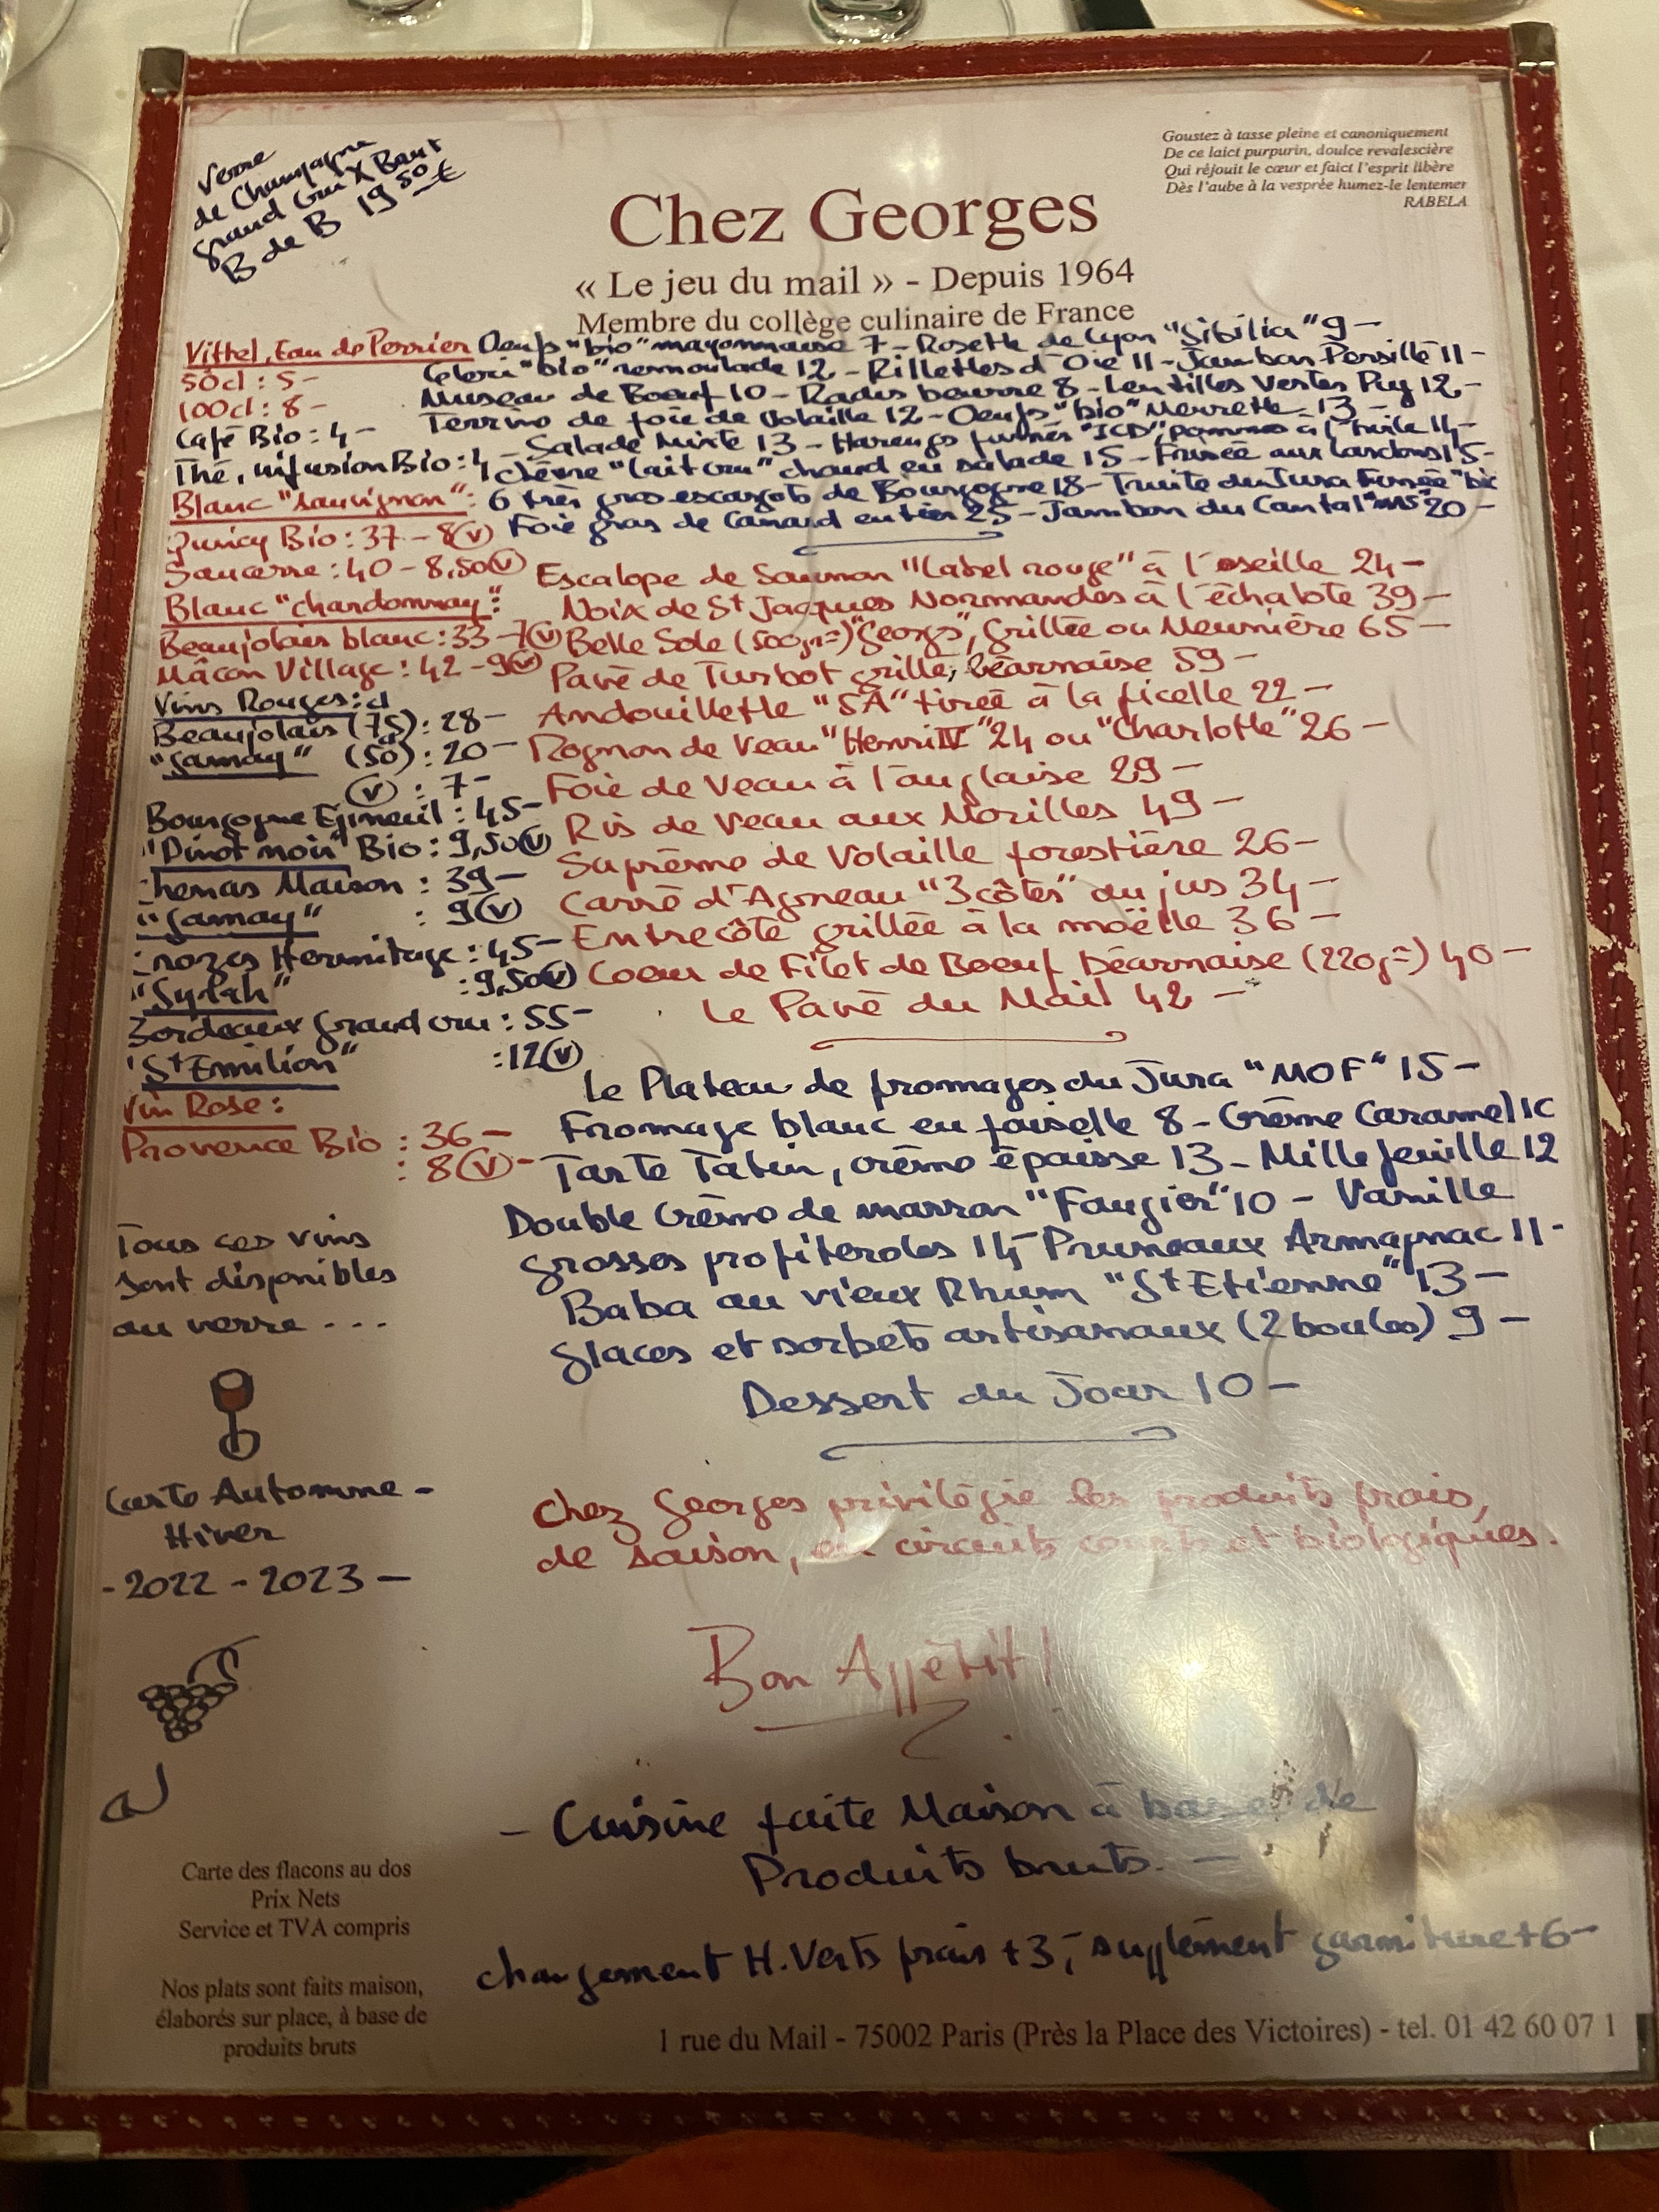 Verre
de Champagne
grand Cru X Brut
B de B 19 50 €
Goustez à tasse pleine et canoniquement
De ce laict purpurin, doulce revalescière
Qui réjouit le cœur et faict l'esprit libère
Dès l'aube à la vesprée humez-le lentemer
RABELA
Chez Georges
« Le jeu du mail » - Depuis 1964
Membre du collège culinaire de France
Vittel, Eau de Perrier
50cl : 5 -
100cl : 8 -
Café Bio : 4 -
Thé, infusion Bio : 4 -
Blanc "Sauvignon" :
Quincy Bio : 37 - 8(v)
Sancerre : 40 - 8,50(v)
Blanc "chardonnay" :
Beaujolais blanc : 33 - 7(v)
Mâcon Village : 42 - 9(v)
Vins Rouges :
Beaujolais (75) : 28 -
"Gamay" (50) : 20 -
(v) : 7 -
Bourgogne Epineuil : 45 -
"Pinot noir" Bio : 9,50(v)
henas Maison : 39 -
"Gamay" : 9(v)
rozes Hermitage : 45 -
"Syrah" : 9,50(v)
Bordeaux Grand cru : 55 -
"St Emilion" : 12(v)
Vin Rose :
Provence Bio : 36 -
: 8(v) -
Tous ces vins
sont disponibles
au verre . . .
Carte Automne -
Hiver
- 2022 - 2023 -
Oeufs "bio" mayonnaise 7 - Rosette de Lyon "Sibilia" 9 -
Celeri "bio" remoulade 12 - Rillettes d'Oie 11 - Jambon Persillé 11 -
Museau de Boeuf 10 - Radis beurre 8 - Lentilles Vertes Puy 12 -
Terrine de foie de Volaille 12 - Oeufs "bio" Meurette 13 -
Salade Mixte 13 - Harengs fumés "JCD", pommes à l'huile 14 -
Chèvre "lait cru" chaud en salade 15 - Frisée aux lardons 15 -
6 très gros escargots de Bourgogne 18 - Truite du Jura Fumée "bic
Foie gras de Canard entier 25 - Jambon du Cantal 20 -
Escalope de Saumon "Label rouge" à l'oseille 24 -
Noix de St Jacques Normandes à l'échalote 39 -
Belle Sole (500gr) "Georges", Grillée ou Meunière 65 -
Pavé de Turbot grillé, béarnaise 59 -
Andouillette "5A" tirée à la ficelle 22 -
Rognon de Veau "Henri IV" 24 ou "Charlotte" 26 -
Foie de Veau à l'anglaise 29 -
Ris de Veau aux Morilles 49 -
Suprême de Volaille forestière 26 -
Carré d'Agneau "3 côtes" au jus 34 -
Entrecôte grillée à la moëlle 36 -
Coeur de Filet de Boeuf béarnaise (220gr) 40 -
Le Pavé du Mail 42 -
Le Plateau de fromages du Jura "MOF" 15 -
Fromage blanc en faiselle 8 - Crème Caramel 1C
Tarte Tatin, crème épaisse 13 - Mille feuille 12
Double Crème de marron "Faugier" 10 - Vanille
Grosses profiteroles 14 - Pruneaux Armagnac 11 -
Baba au vieux Rhum "St Etienne" 13 -
Glaces et sorbets artisanaux (2 boules) 9 -
Dessert du Jour 10 -
Chez Georges privilégie les produits frais,
de saison, en circuits courts et biologiques.
Bon Appétit !
- Cuisine faite Maison à base de
Produits bruts. -
changement H.Verts frais + 3, - supplément garniture + 6 -
Carte des flacons au dos
Prix Nets
Service et TVA compris
Nos plats sont faits maison,
élaborés sur place, à base de
produits bruts
1 rue du Mail - 75002 Paris (Près la Place des Victoires) - tel. 01 42 60 07 1